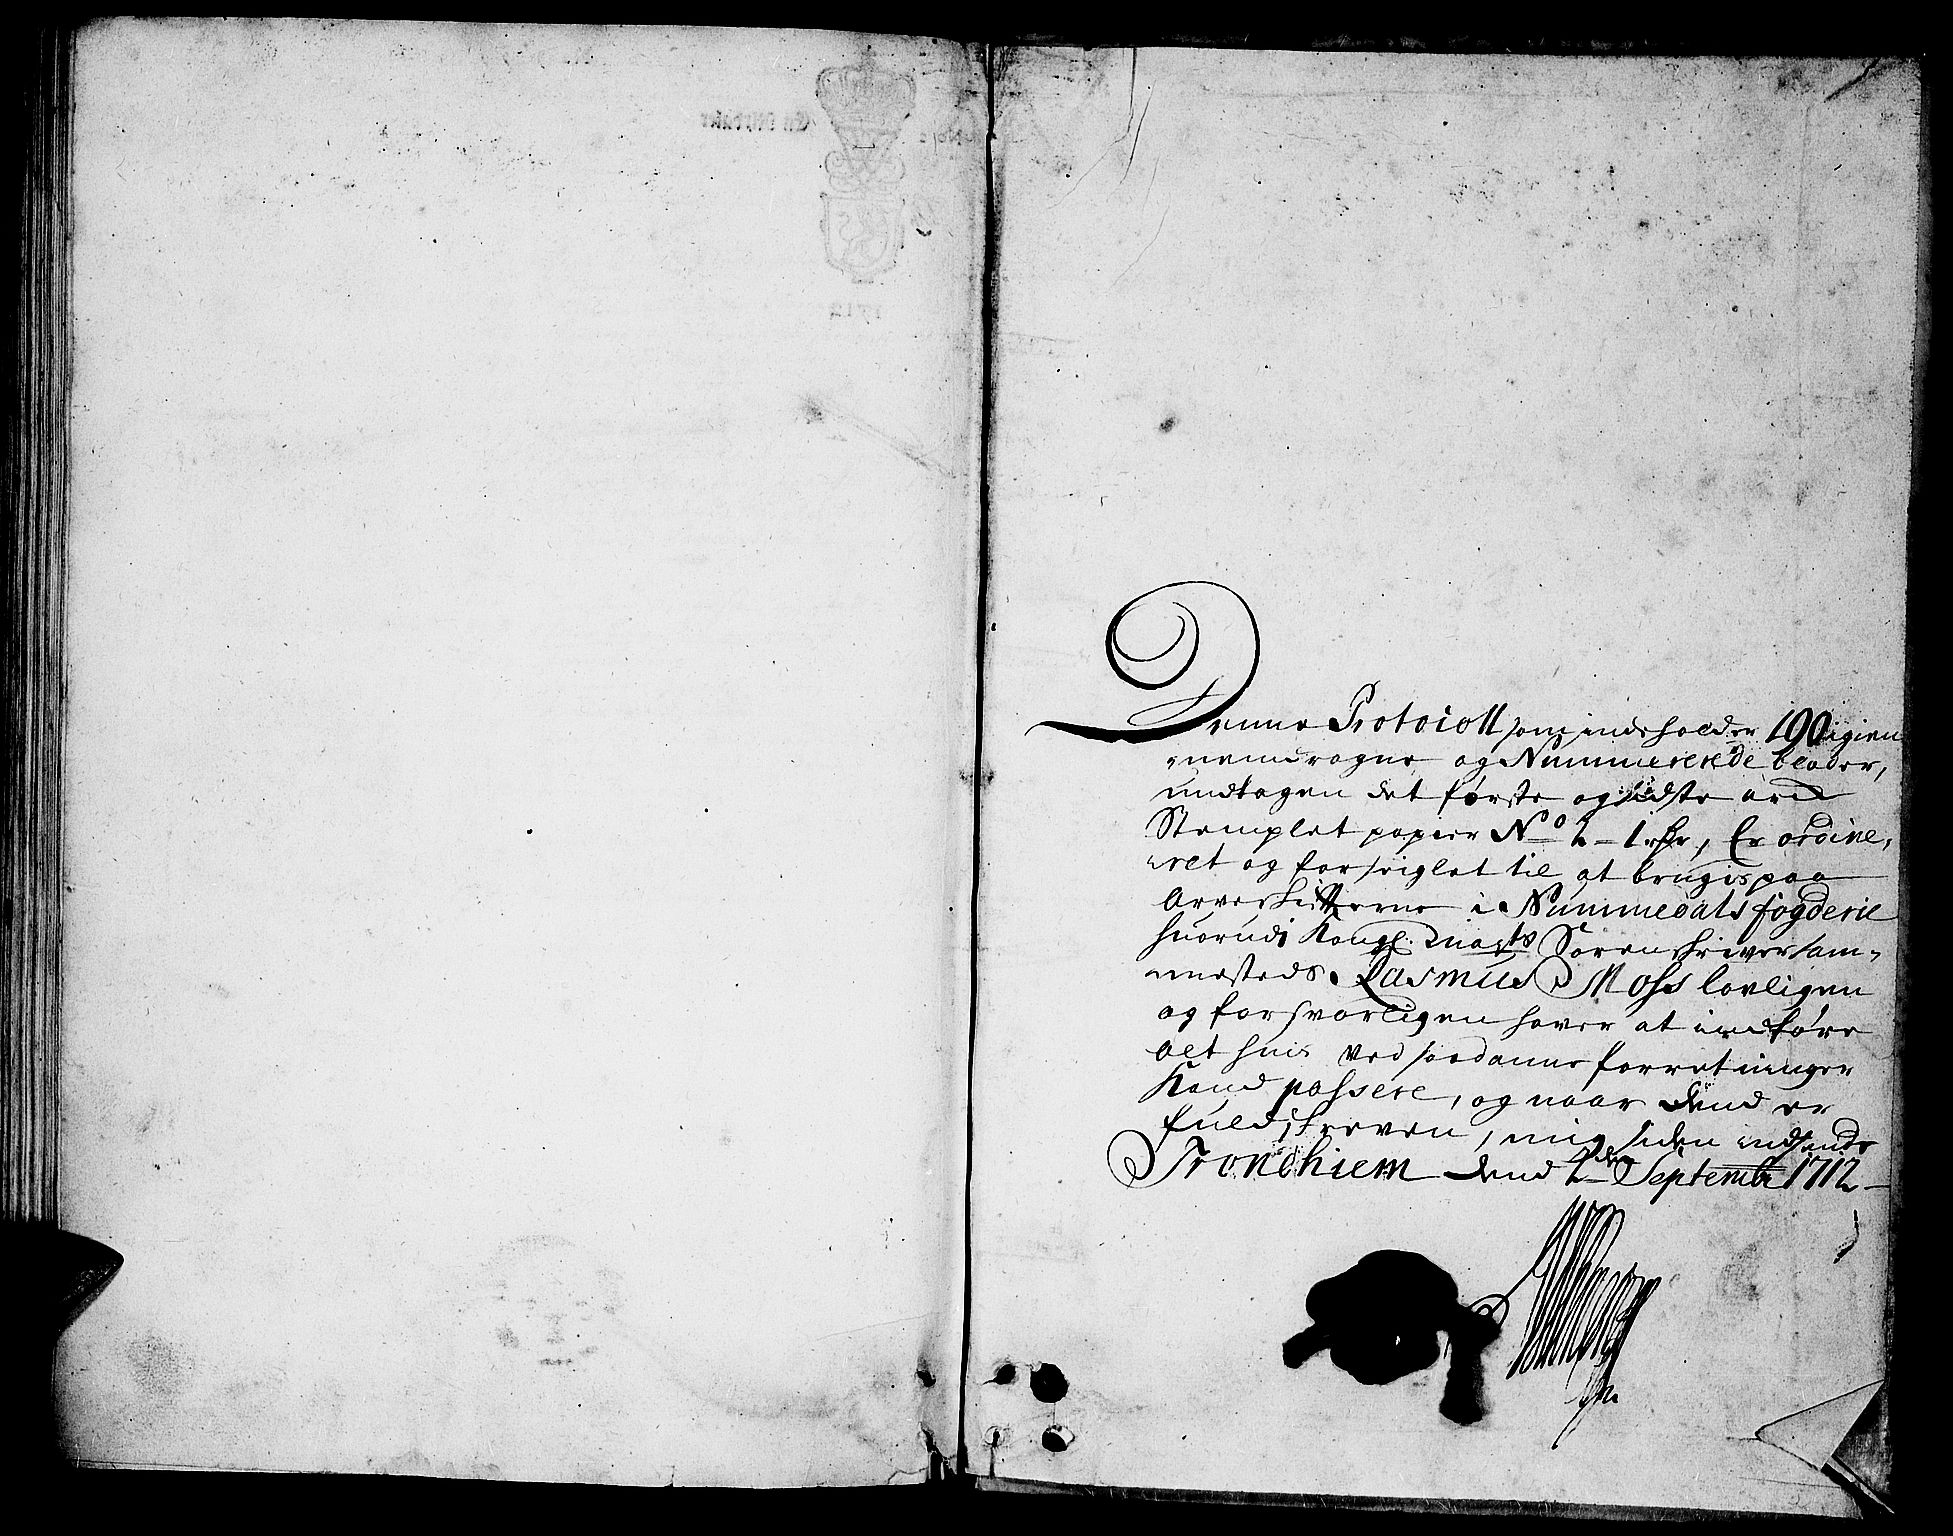 1712
Denne Protocoll som indeholder 190 igien
nemdragne og Nummererede blader,
undtagen det første og sidste ard
Stemplet papiir No 2 - 1 rdr, Er ordine,
ret og forseiglet til at brugis paa
Arveskifterne i Nummedals fogderie
huorudi Kongl: Mayts Sorenskriver sam,
mesteds Rasmus Moss lovligen
og forsvarligen haver at indføre
alt huis ved saadanne forretninger
Kand passere, og naar dend er
fuldskreven, mig siden indsende
Trondhiem dend 2den Septembr 1712